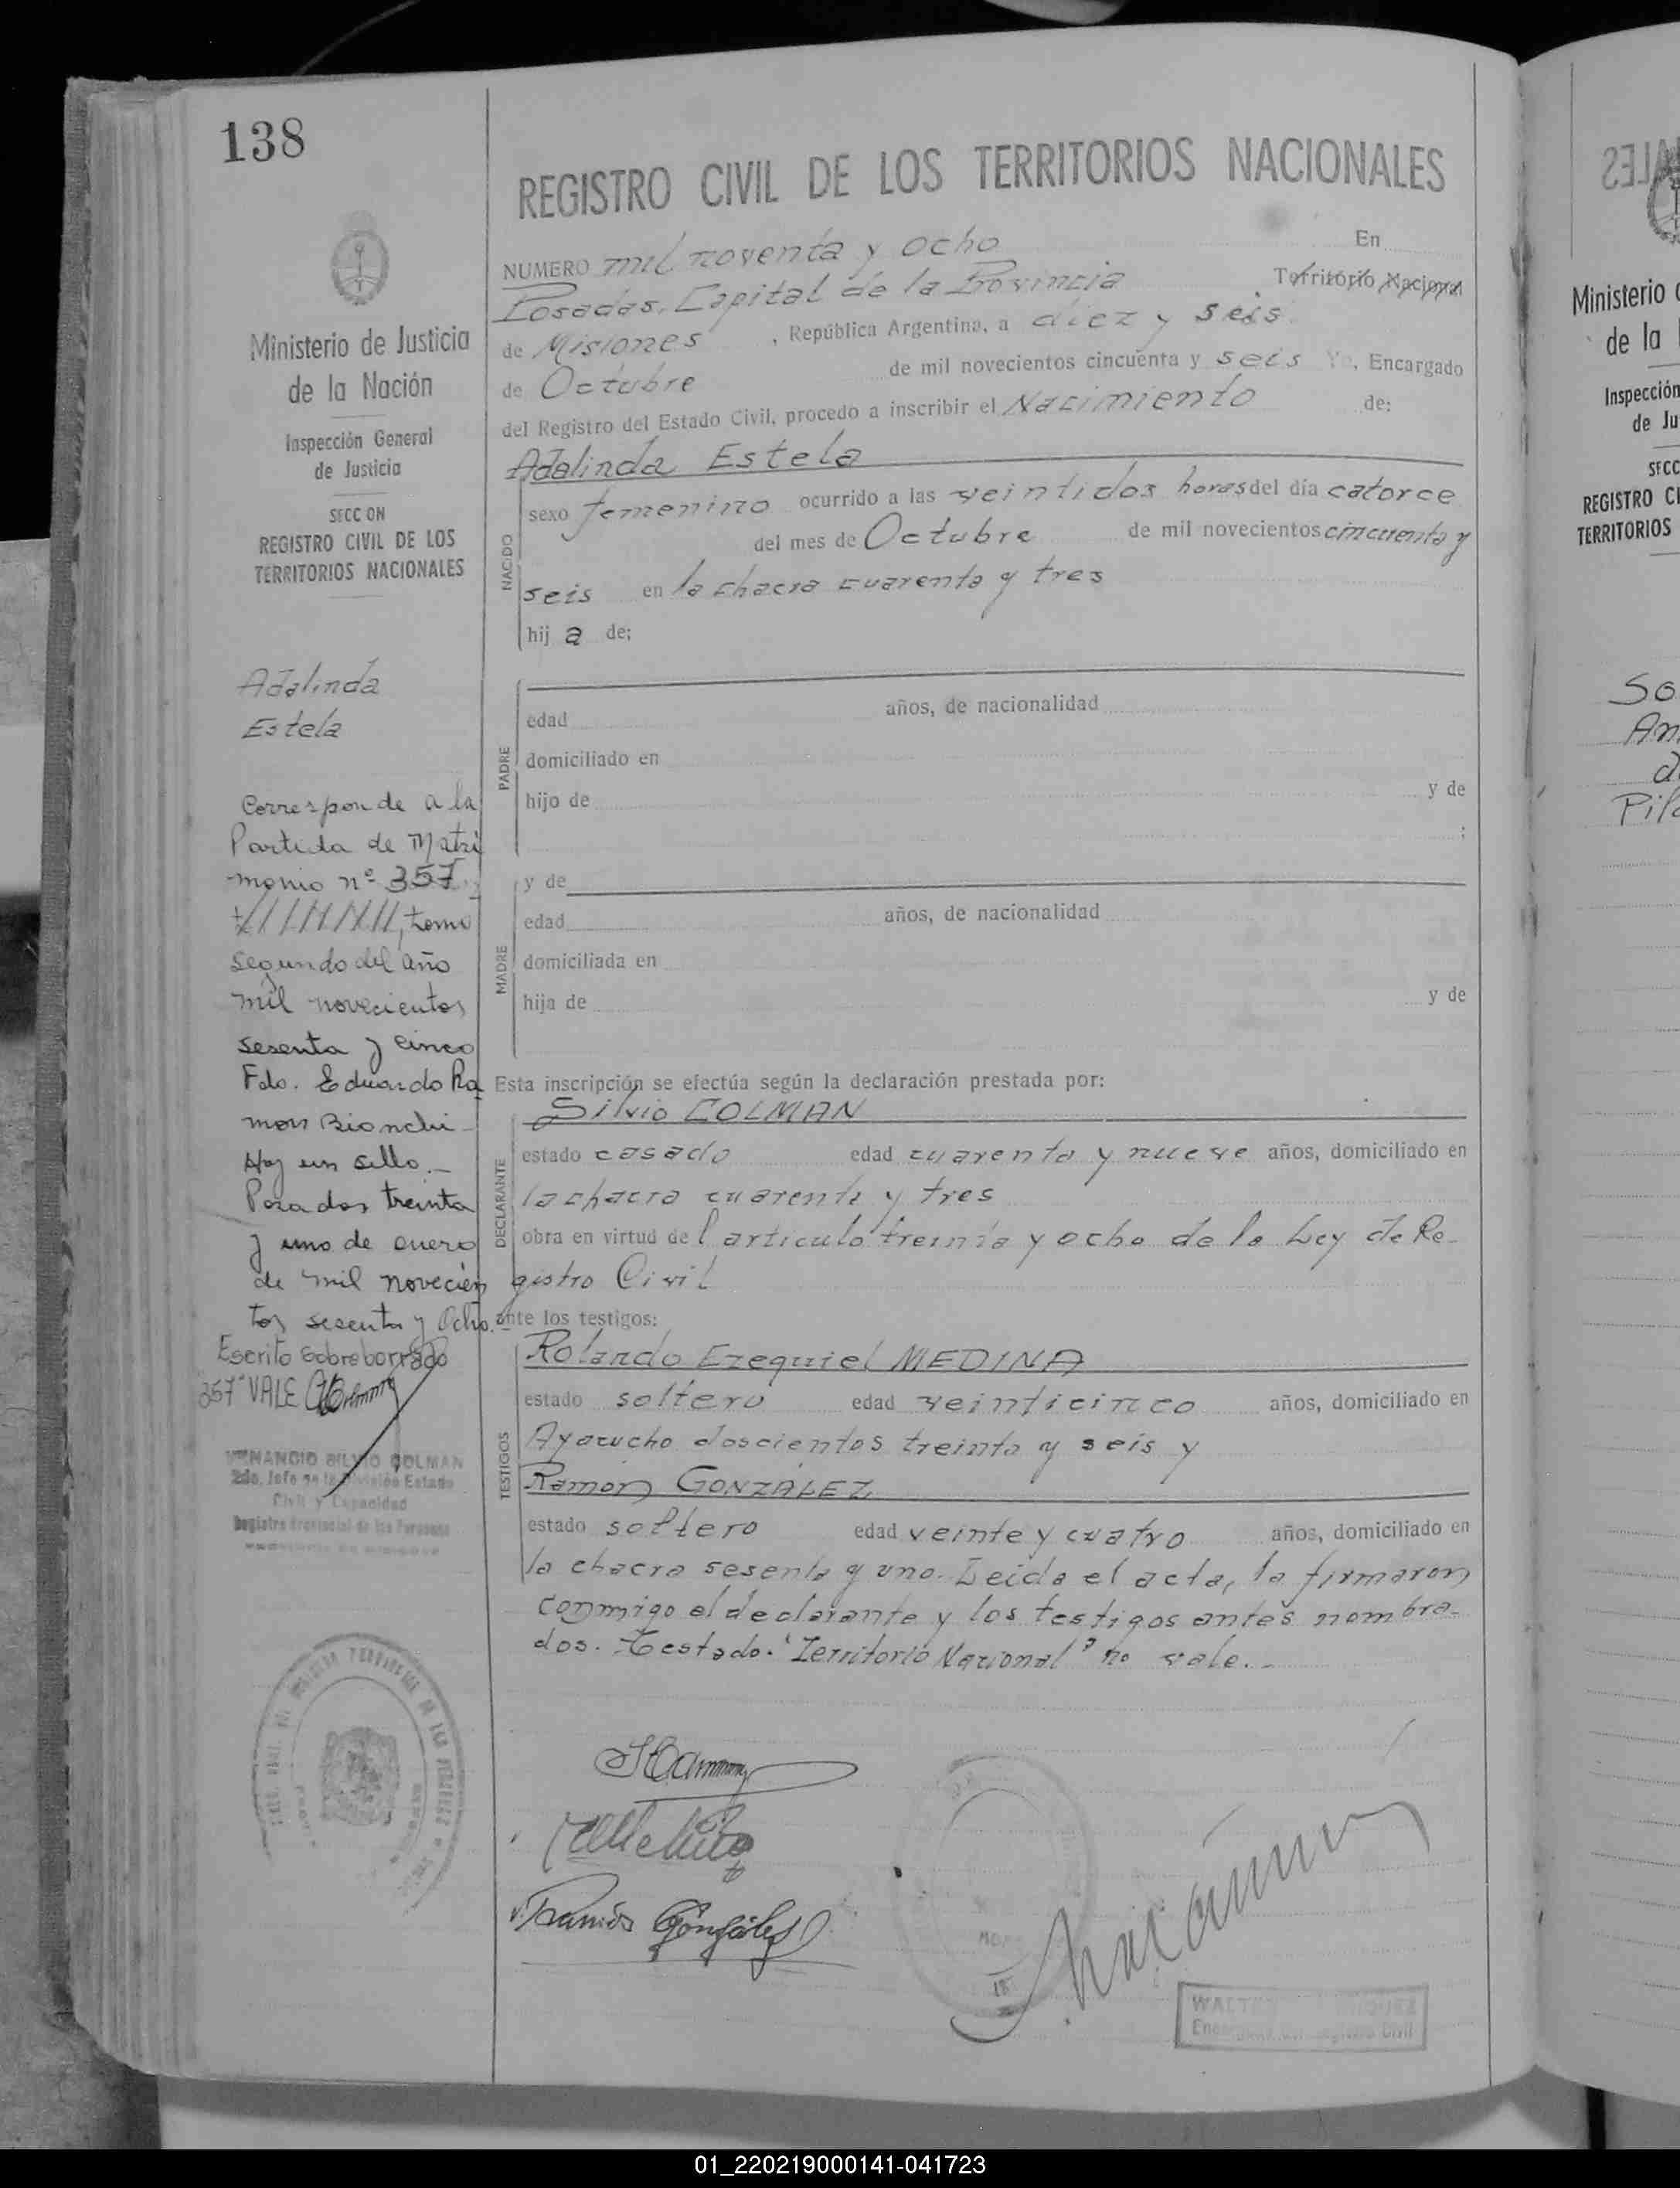 138
REGISTRO CIVIL DE LOS TERRITORIOS NACIONALES
NUMERO mil noventa y ocho En
Posadas, Capital de la Provincia Territorio Nacional
de Misiones, República Argentina, a diez y seis
de Octubre de mil novecientos cincuenta y seis Yo, Encargado
del Registro del Estado Civil, procedo a inscribir el Nacimiento de:
Adalinda Estela
NACIDO
sexo femenino ocurrido a las veintidos horas del día catorce
del mes de Octubre de mil novecientos cincuenta y
seis en la chacra cuarenta y tres
hij a de;
PADRE
edad años, de nacionalidad
domiciliado en
hijo de y de
;
y de
MADRE
edad años, de nacionalidad
domiciliada en
hija de y de
Esta inscripción se efectúa según la declaración prestada por:
Silvio COLMAN
DECLARANTE
estado casado edad cuarenta y nueve años, domiciliado en
la chacra cuarenta y tres
obra en virtud del articulo treinta y ocho de la Ley de Re-
gistro Civil
ante los testigos:
Rolando Ezequiel MEDINA
TESTIGOS
estado soltero edad veinticinco años, domiciliado en
Ayacucho doscientos treinta y seis y
Ramon GONZALEZ
estado soltero edad veinte y cuatro años, domiciliado en
la chacra sesenta y uno. Leida el acta, la firmaron
conmigo el declarante y los testigos antes nombra-
dos. Testado. "Territorio Nacional" no vale.-
Ramón González
WALT
Ministerio de Justicia
de la Nación
Inspección General
de Justicia
SECCION
REGISTRO CIVIL DE LOS
TERRITORIOS NACIONALES
Adalinda
Estela
Corresponde a la
Partida de Matri
monio nº 357
tomo
segundo del año
mil novecientos
sesenta y cinco
Fdo. Eduardo Ra
mon Bianchi-
Hay un sello.-
Posadas treinta
y uno de enero
de mil novecien
tos sesenta y ocho.
Escrito sobreborrado
357" VALE
VENANCIO SILVIO COLMAN
2do. Jefe de la División Estado
Civil y Capacidad
Registro Provincial de las Personas
LES
Ministerio
de la
Inspección
de Ju
SECC
REGISTRO CI
TERRITORIOS
So
An
d
Pila
01_220219000141-041723